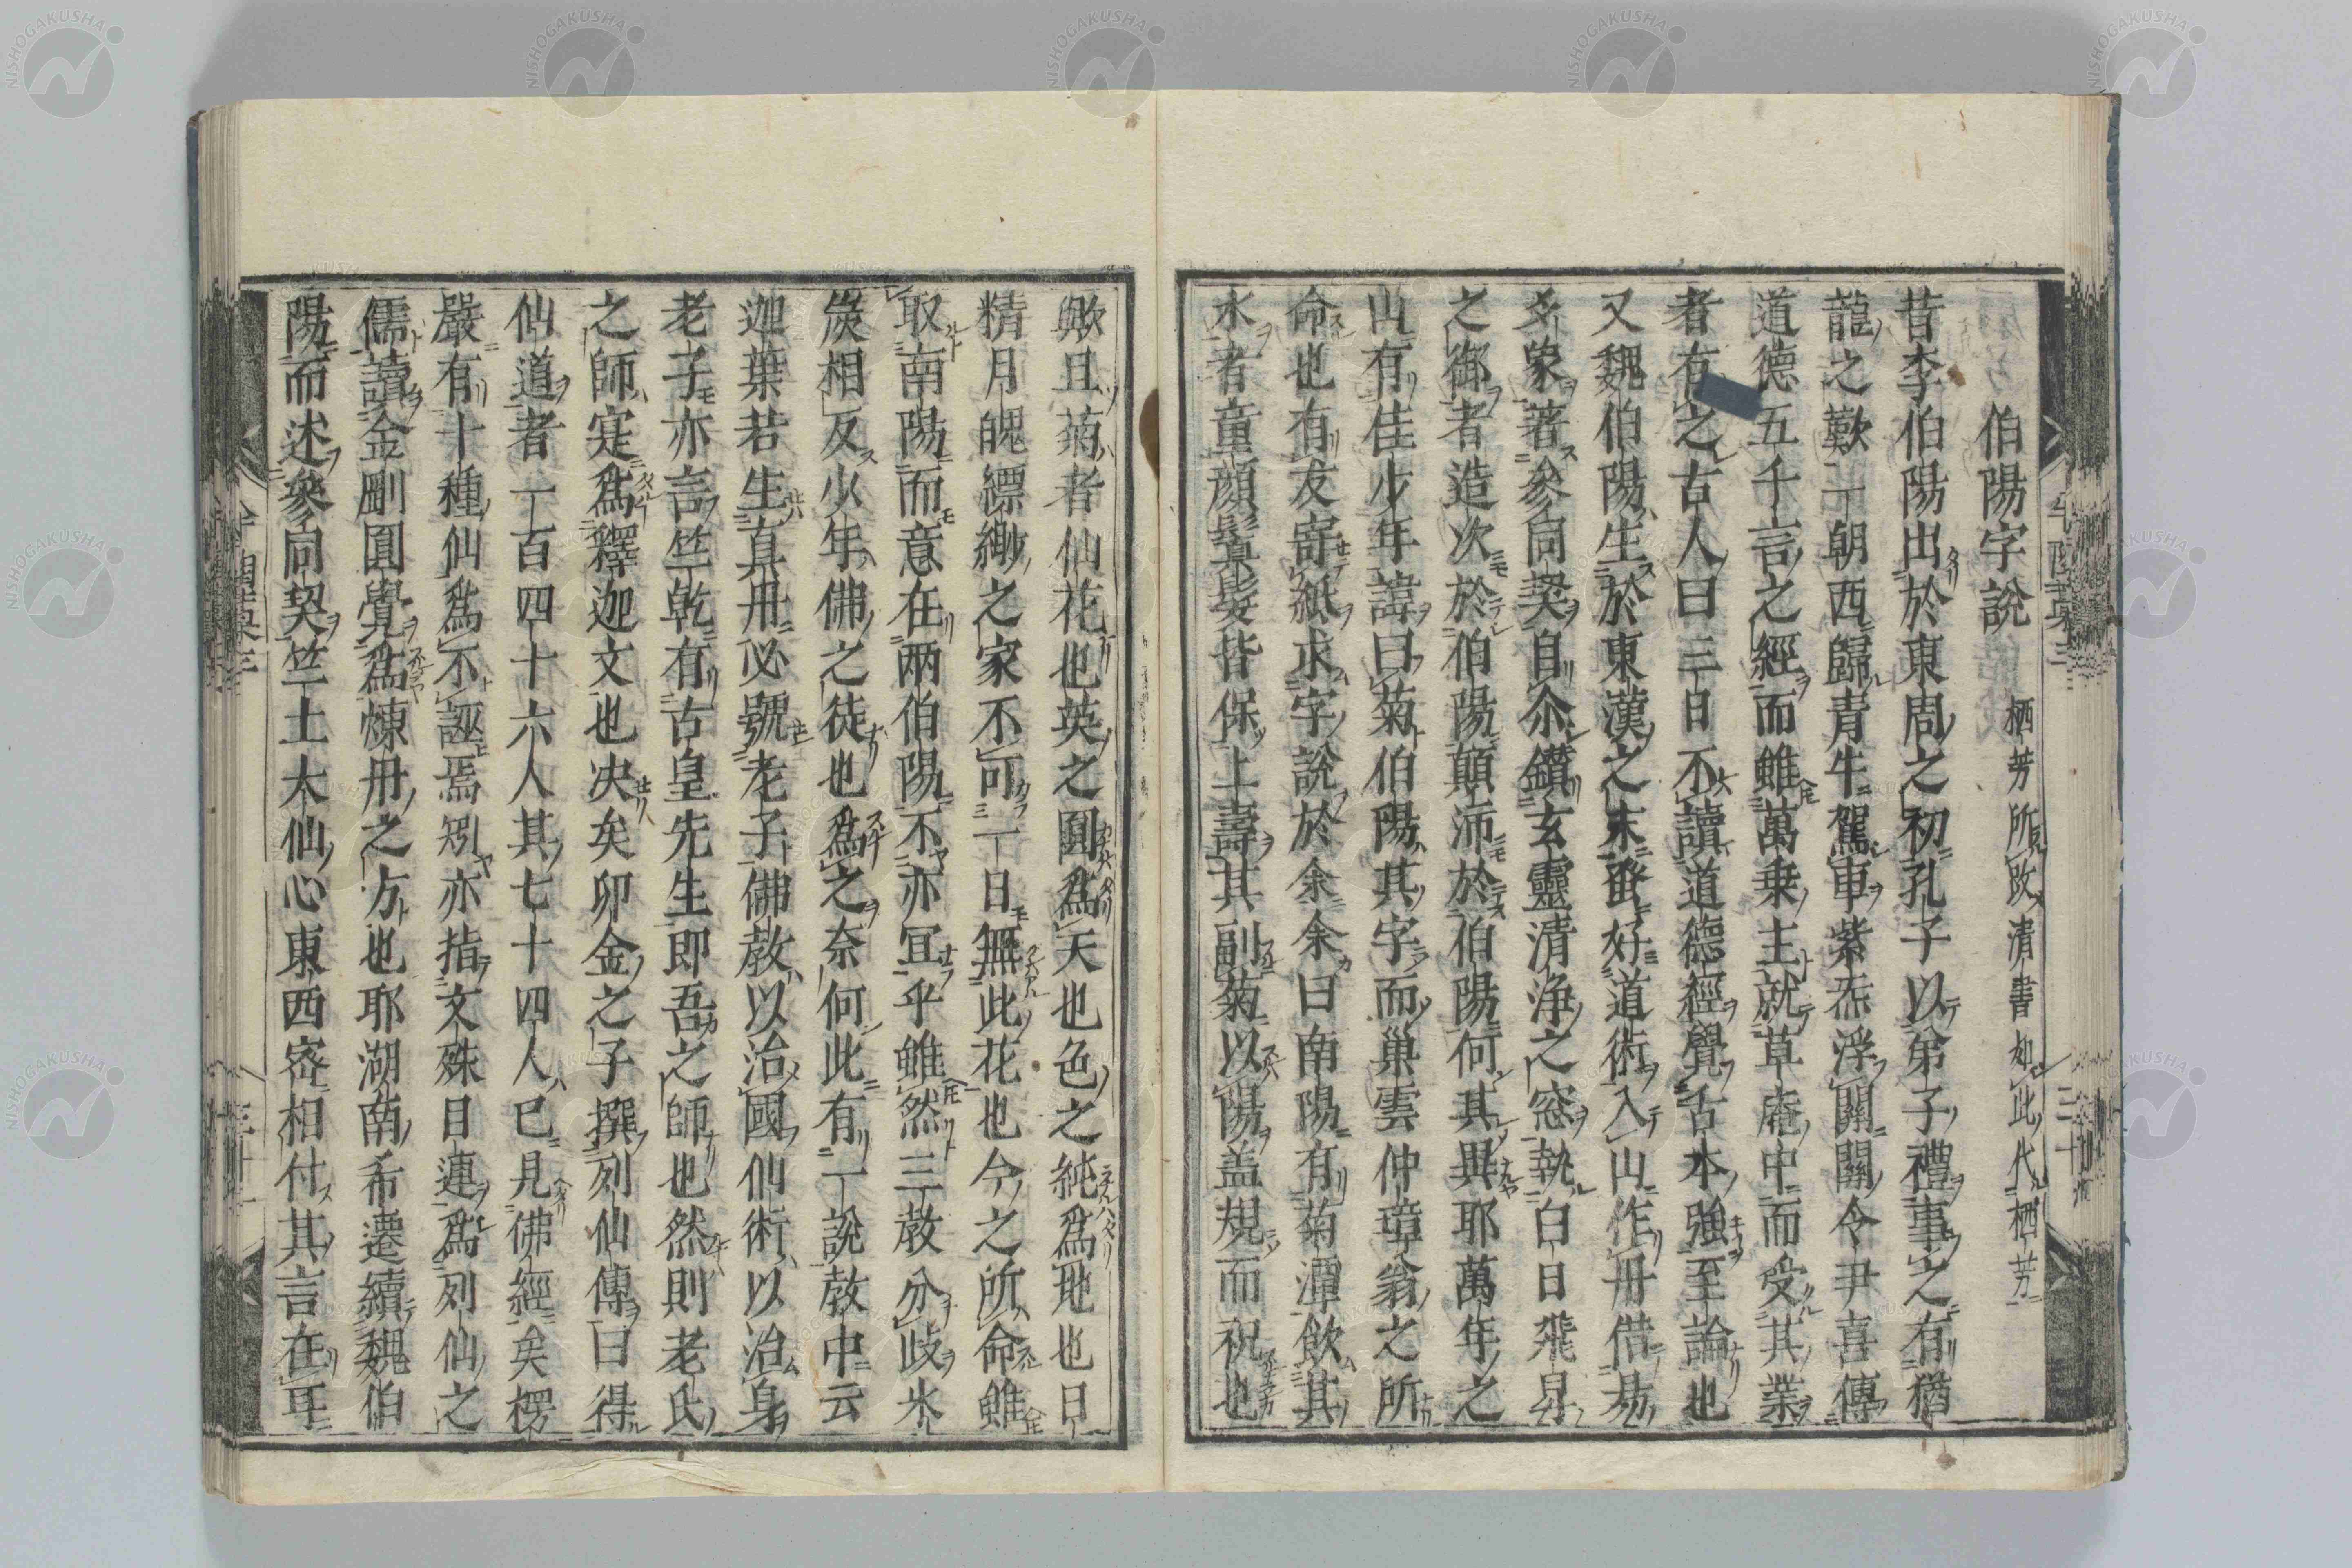 伯陽字說 栖芳所改清書如此代栖芳
昔李伯陽出於東周之初孔子以弟子禮事之有猶
龍之歎一朝西歸青牛駕車紫炁浮關關令尹喜傳
道德五千言之經而雖萬乗主就草庵中而受其業
者有之古人曰三日不讀道德經覺舌本強至論也
又魏伯陽生於東漢之末酷好道術入山作丹借易
爻象著參同契自尒鑽玄靈清浄之窓執白日飛昇
之御者造次於伯陽顛沛於伯陽何其異耶萬年之
山有佳少年諱曰菊伯陽其字而巢雲仲璋翁之所
命也有友寄紙求字說於余余曰南陽有菊潭飲其
水者童顔鬒髮皆保上壽其副菊以陽盖規而祝也
歟且菊者仙花也英之圓爲天也色之純爲地也日
精月魄縹緲之家不可一日無此花也今之所命雖
取南陽而意在兩伯陽不亦冝乎雖然三教分歧氷
炭相反少年佛之徒也爲之奈何此有一說教中云
迦葉若生真丹必號老子佛教以治國仙術以治身
老子亦言竺乾有古皇先生即吾之師也然則老氏
之師寔爲釋迦文也决矣卯金之子撰列仙傳曰得
仙道者一百四十六人其七十四人已見佛經矣楞
嚴有十種仙爲不誣焉矧亦指文殊目連爲列仙之
儒讀金剛圓覺爲煉丹之方也耶湖南希遷續魏伯
陽而述參同契竺土大仙心東西密相付其言在耳